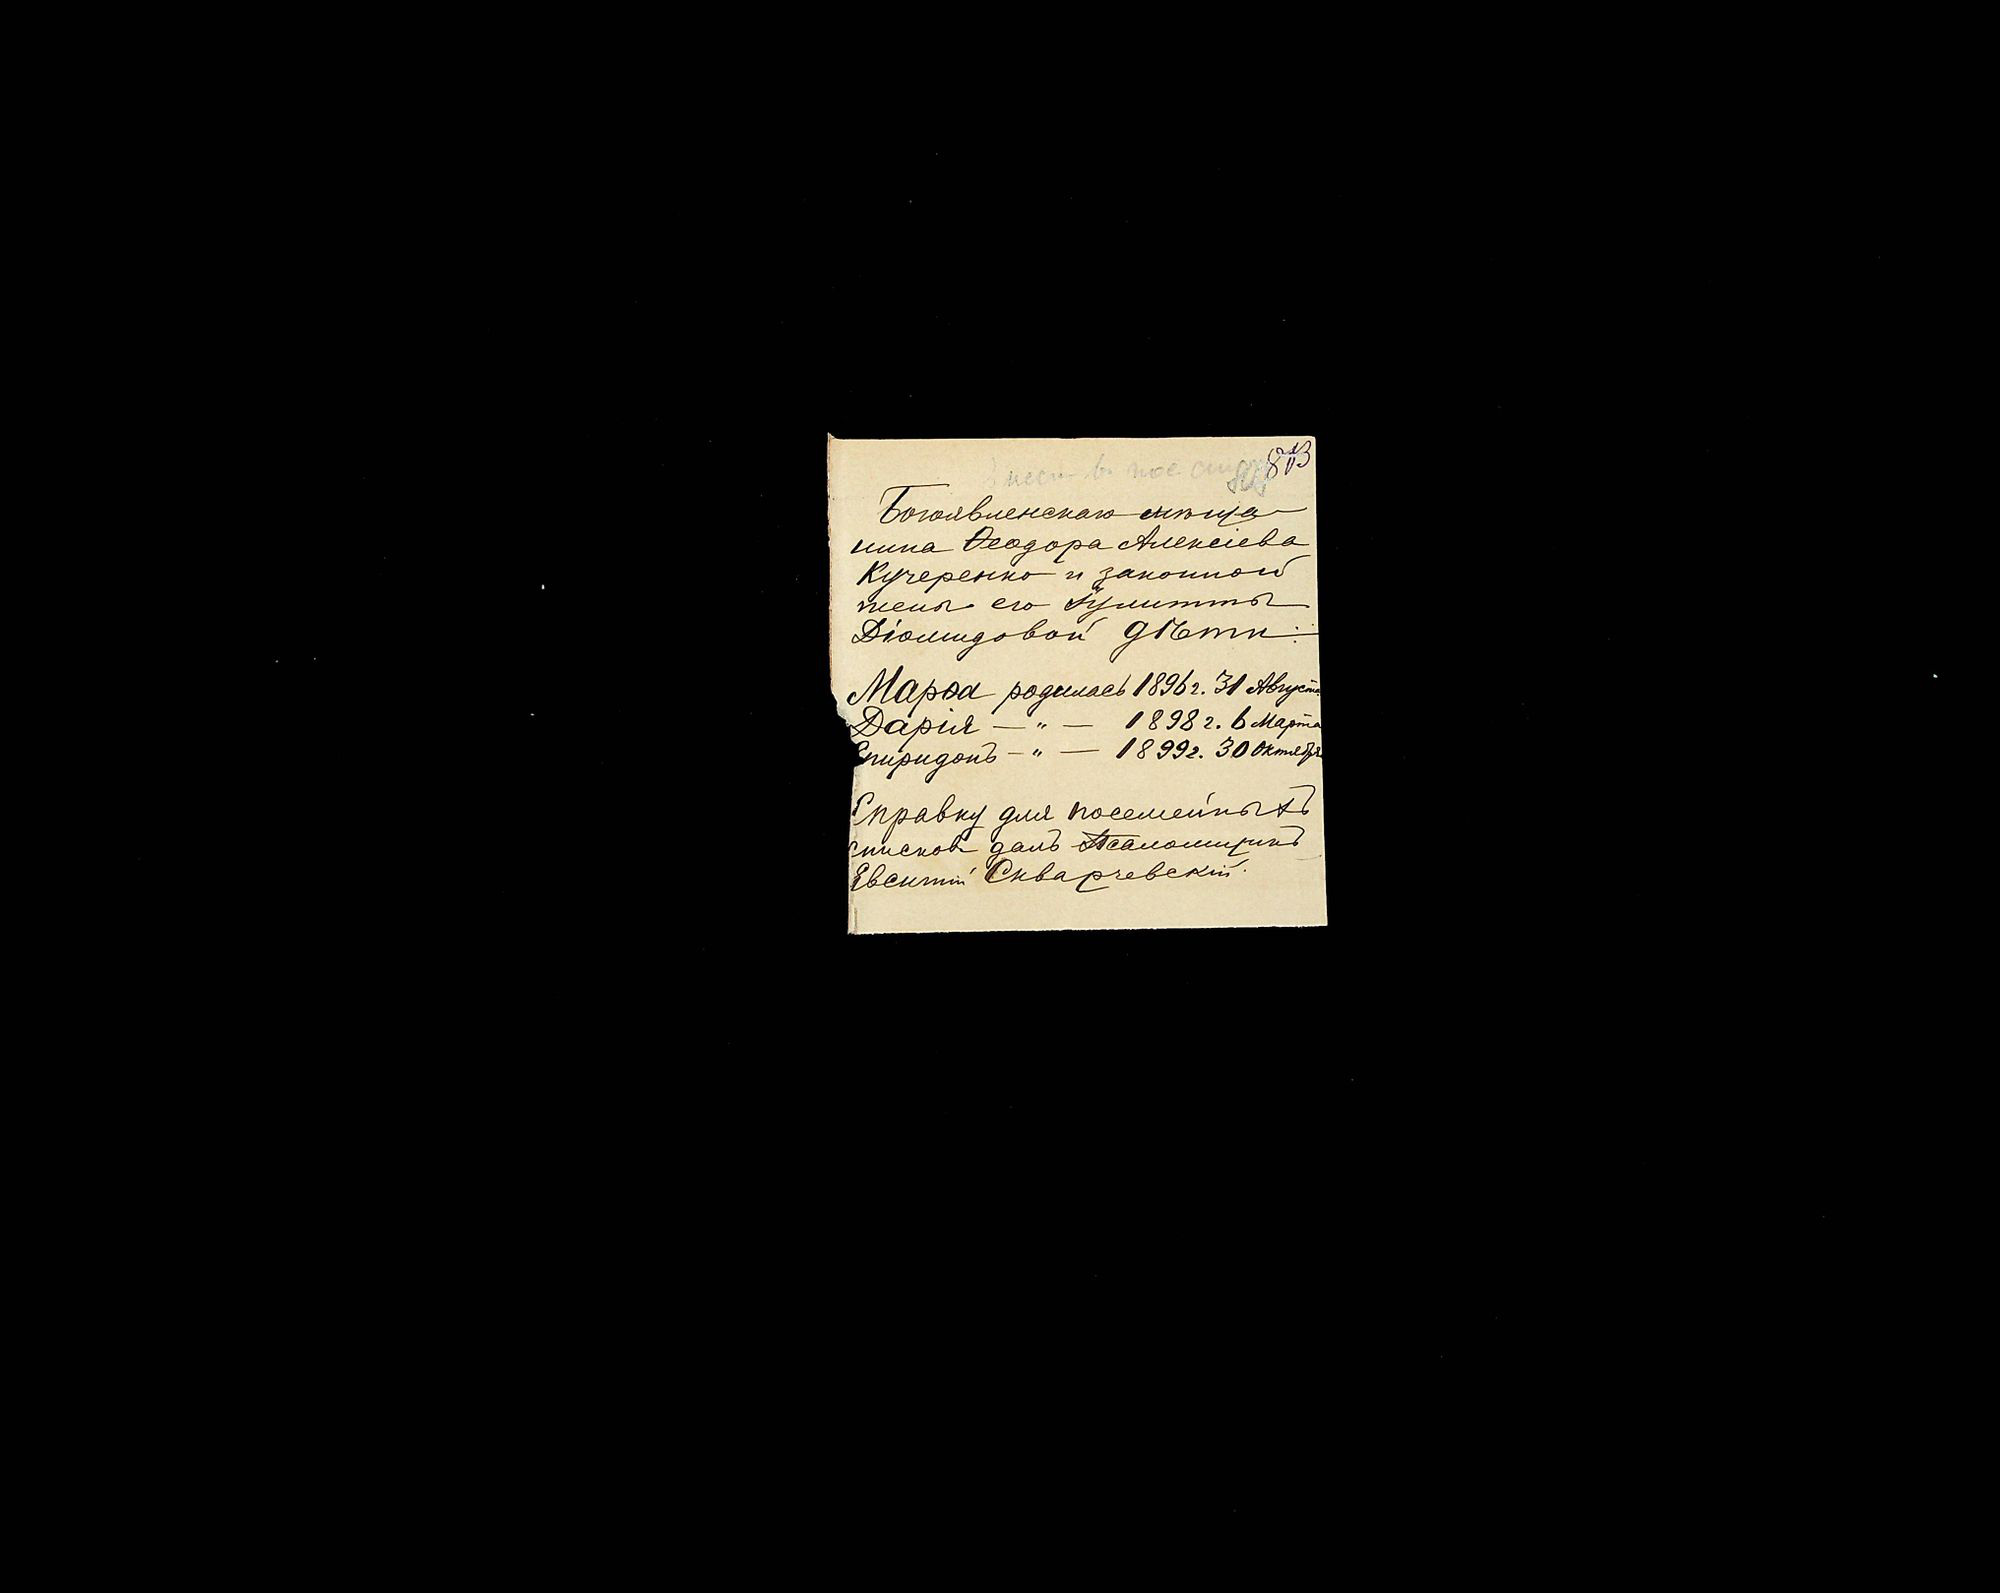 873
внест въ пос
Богоявленскаго мѣща-
нина Ѳеодора Алексіева
Кучеренко и законной
жены его Іулитты
Діомидовой дѣти:
Марѳа родилась 1896 г. 31 Августа
Дарія — „ — 1898 г. 6 Марта
Спиридонъ — „ — 1899 г. 30 Октября
Справку для посемейныхъ
списковъ далъ Псаломщикъ
Евсигній Скварчевскій.